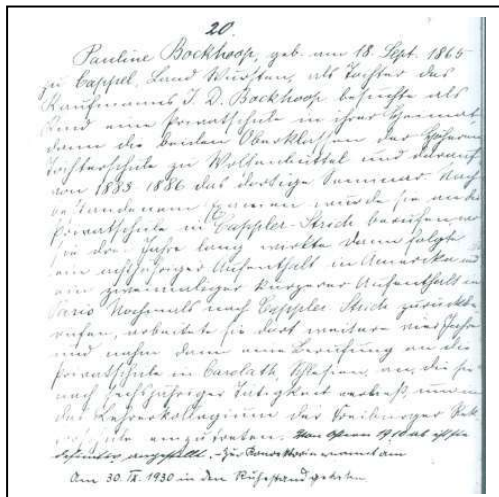 20.
Pauline Bockhoop, geb. am 18. Sept. 1865
zu Cappel, Land Wursten, als Tochter des
Kaufmanns J. D. Bockhoop besuchte als
Kind eine Privatschule in ihrer Heimat
dann die beiden Oberklassen der höheren
Töchterschule zu Wolfenbüttel und darauf
von 1883 1886 das dortige Seminar. Nach
bestandenem Examen wurde sie an die
Privatschule in Cappler-Strich berufen, wo
sie drei Jahre lang wirkte dann folgte
ein achtjähriger Aufenthalt in Amerika und
ein zweimaliger kürzerer Aufenthalt in
Paris Nochmals nach Cappler-Strich zurückbe
rufen, arbeitete sie dort weitere vier Jahre
und nahm dann eine Berufung an die
Privatschule in Carolath, Schlesien, an, die sie
nach sechsjähriger Tätigkeit verließ, um in
das Lehrerkollegium der Freiburger Rek
torschule einzutreten. Von Ostern 1910 ab ist sie
definitiv angestellt. - Zur Konrektorin ernannt am
Am 30. IX. 1930 in den Ruhestand getreten.